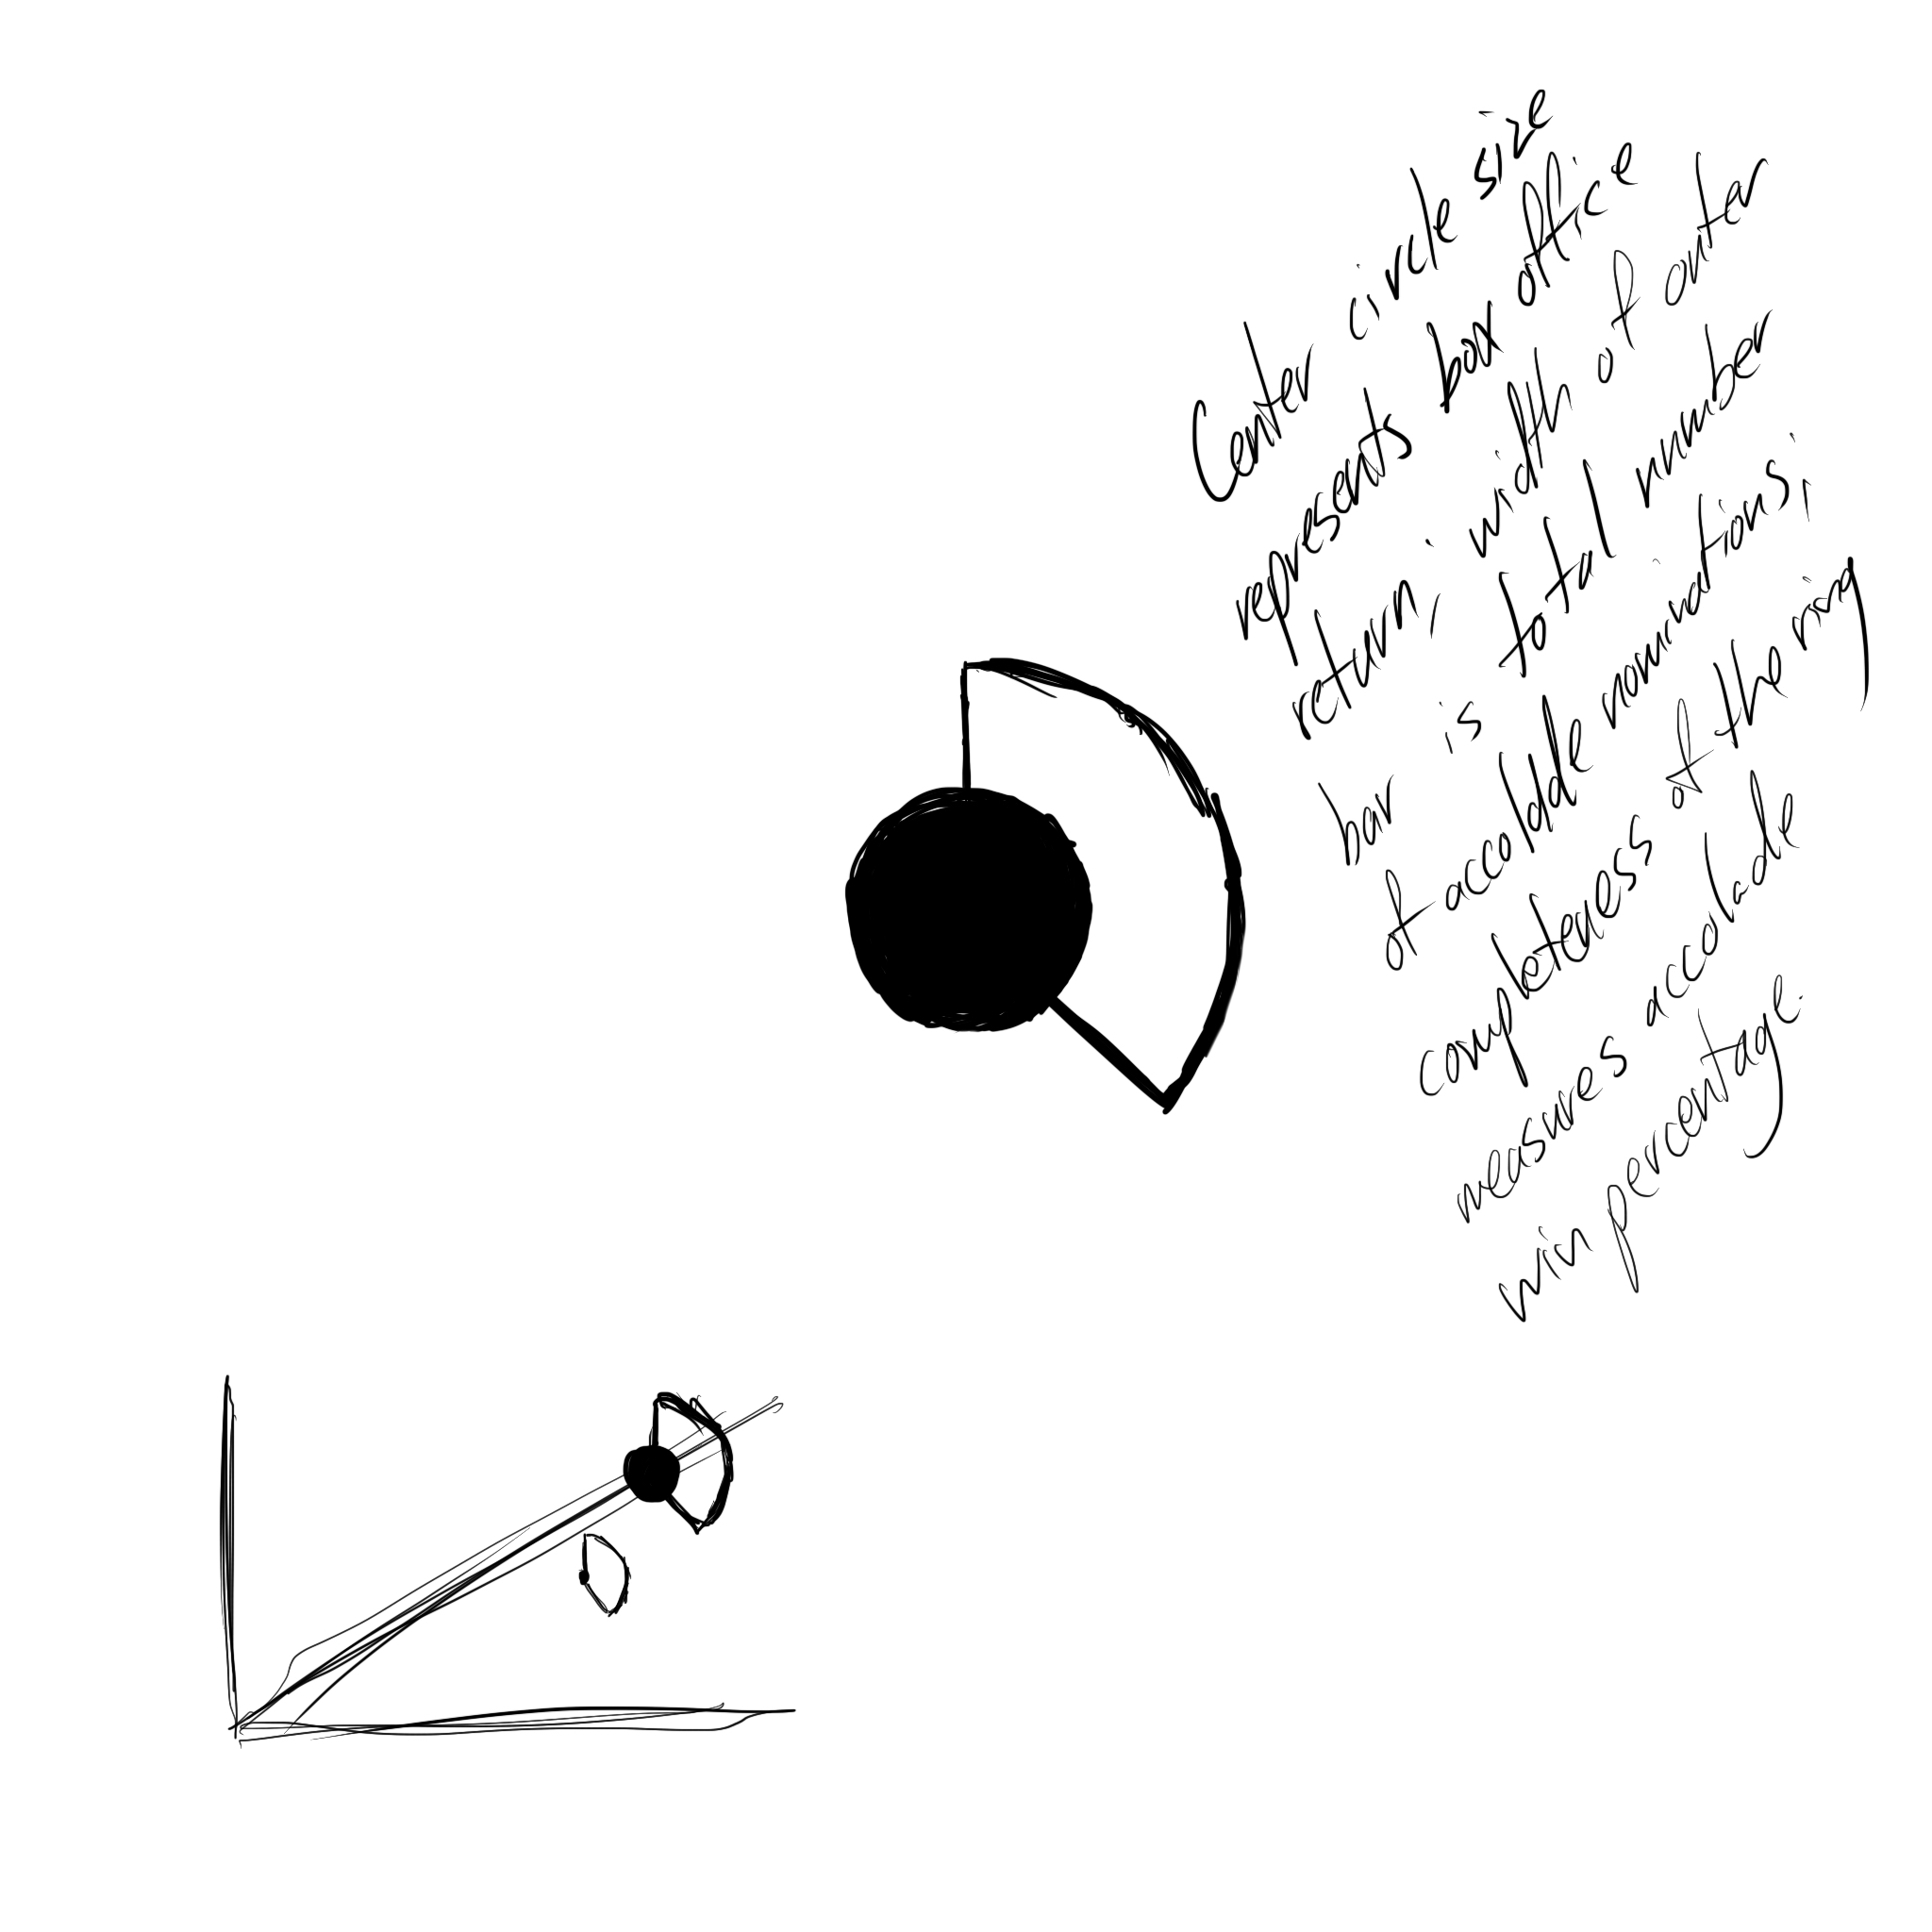 Center circle size
represents box office
return; width of outer
bar is total number
of accolade nominations;
completeness of the ring
measures accolade
win percentage.